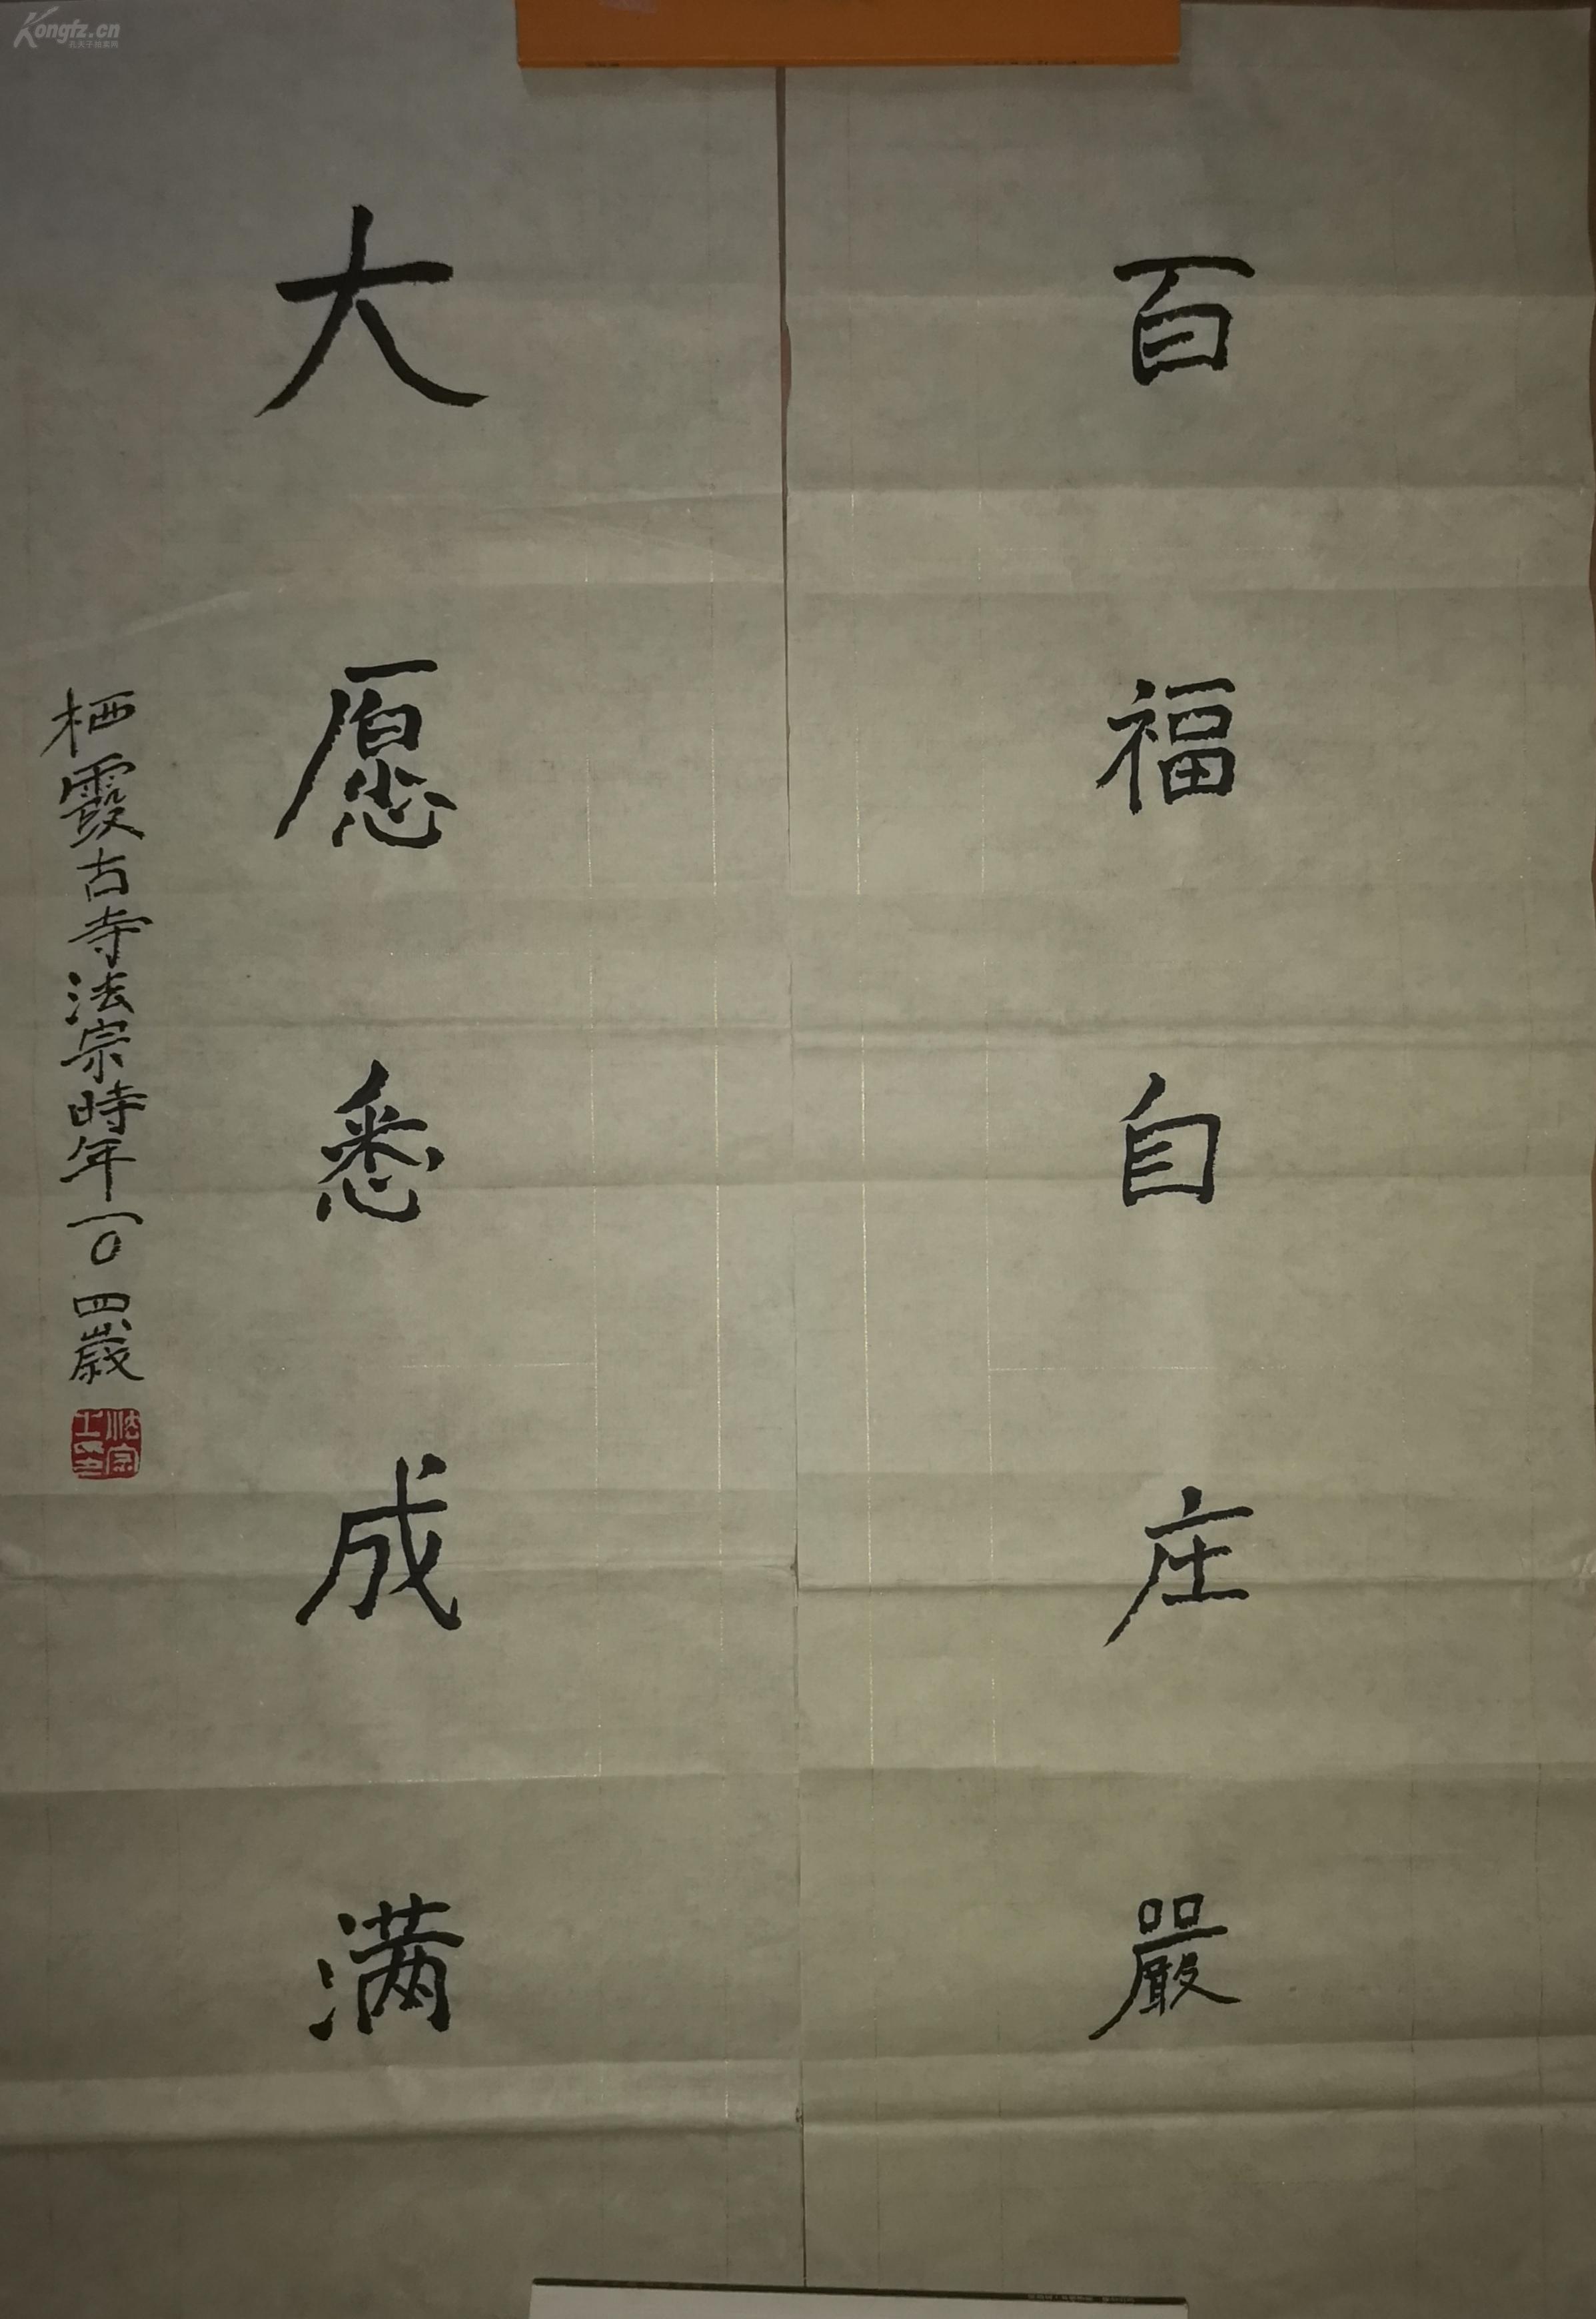 百福自庄嚴
大愿悉成满
栖霞古寺法宗時年一〇四歲
Kongfz.cn
孔夫子拍卖网